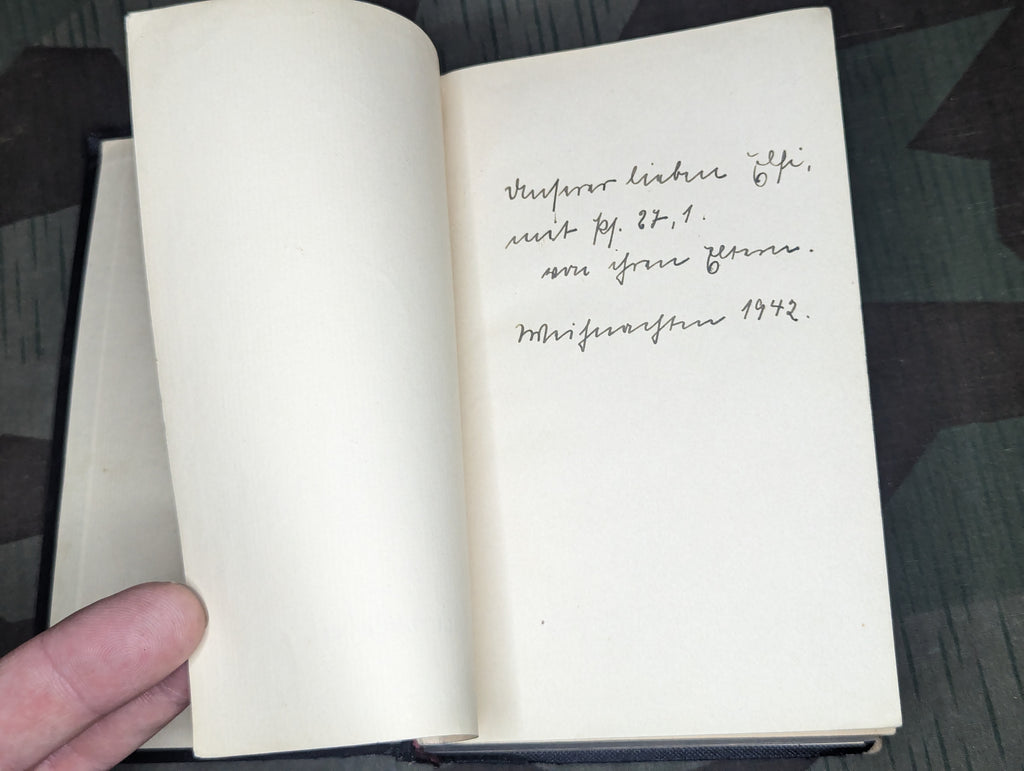 Unserer lieben Elfi,
mit Ps. 27,1.
von ihren Eltern.
Weihnachten 1942.